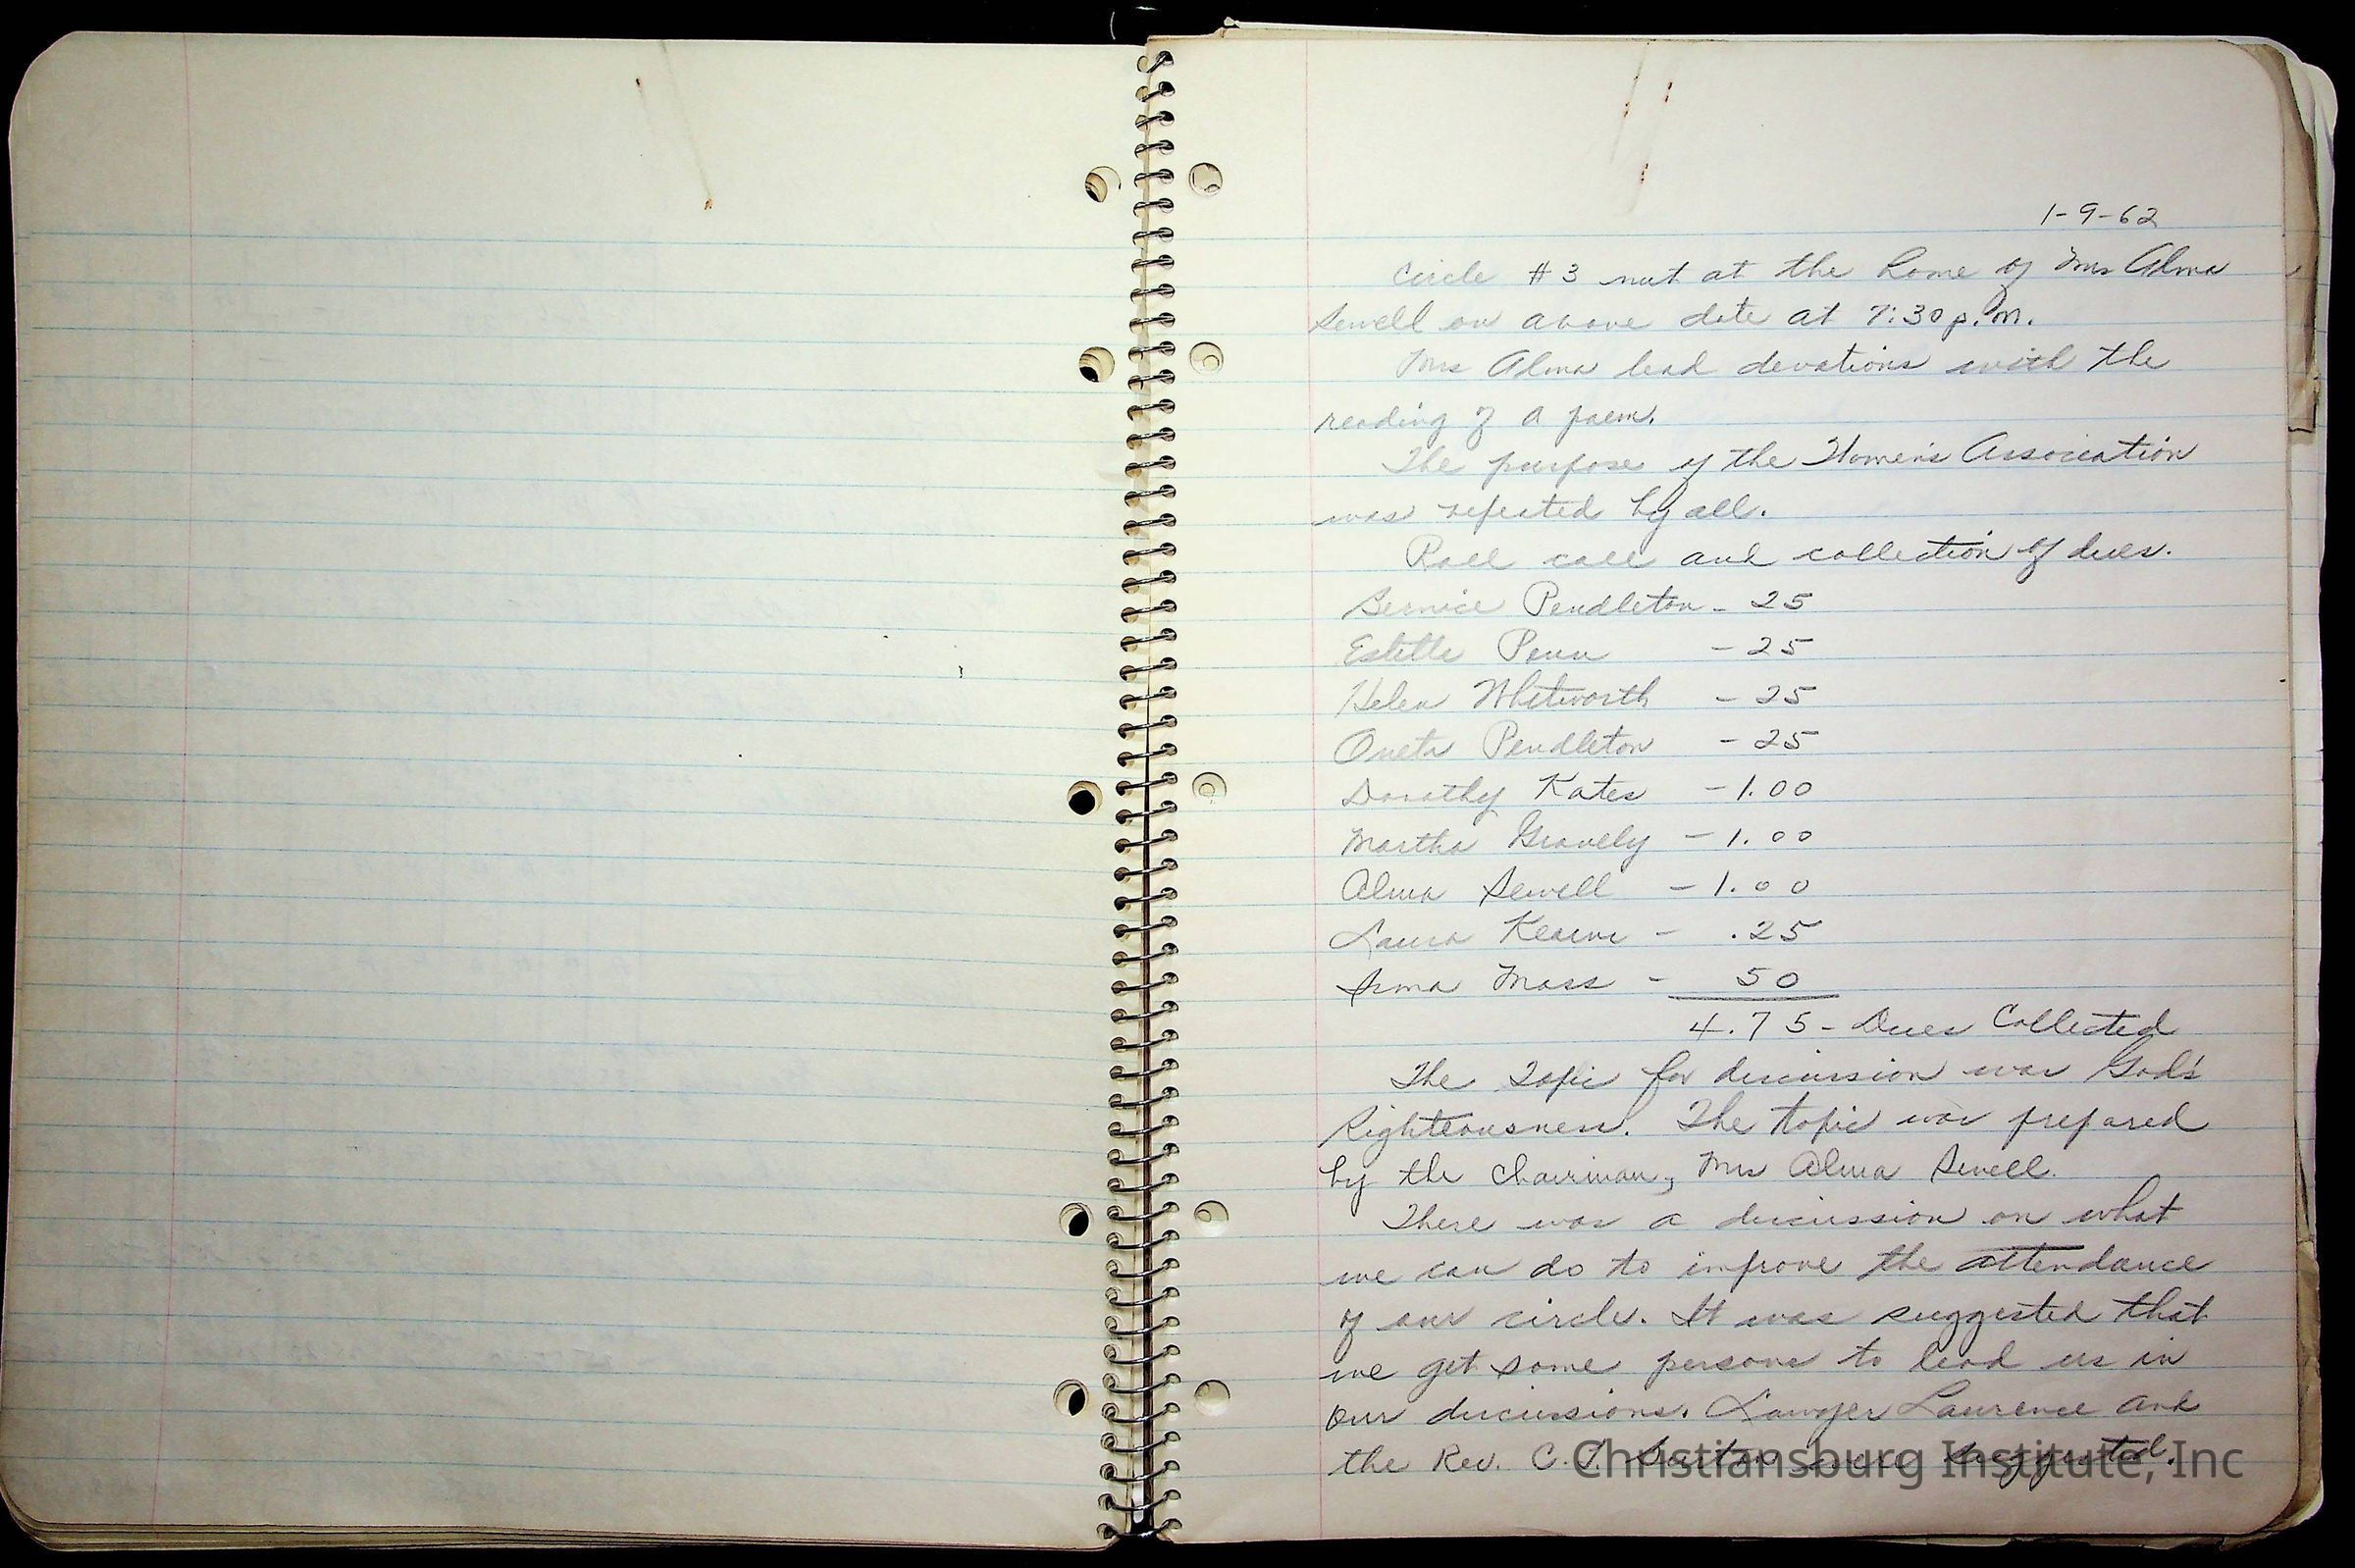 1-9-62
Circle #3 met at the home of Mrs Alma
Sewell on above date at 7:30 p.m.
Mrs Alma lead devotions with the
reading of a poem.
The purpose of the Women's Association
was repeated by all.
Roll call and collection of dues.
Bernice Pendleton - 25
Estelle Penn - 25
Helen Whitworth - 25
Oneta Pendleton - 25
Dorothy Kates - 1.00
Martha Gravely - 1.00
Alma Sewell - 1.00
Laura - .25
Irma Moss - 50
4.75 - Dues Collected
The Topic for discussion was God's
Righteousness. The topic was prepared
by the Chairman, Mrs Alma Sewell.
There was a discussion on what
we can do to improve the attendance
of our circle. It was suggested that
we get some persons to lead us in
our discussions. Lawyer Laurence and
the Rev. C. suggested.
Christiansburg Institute, Inc